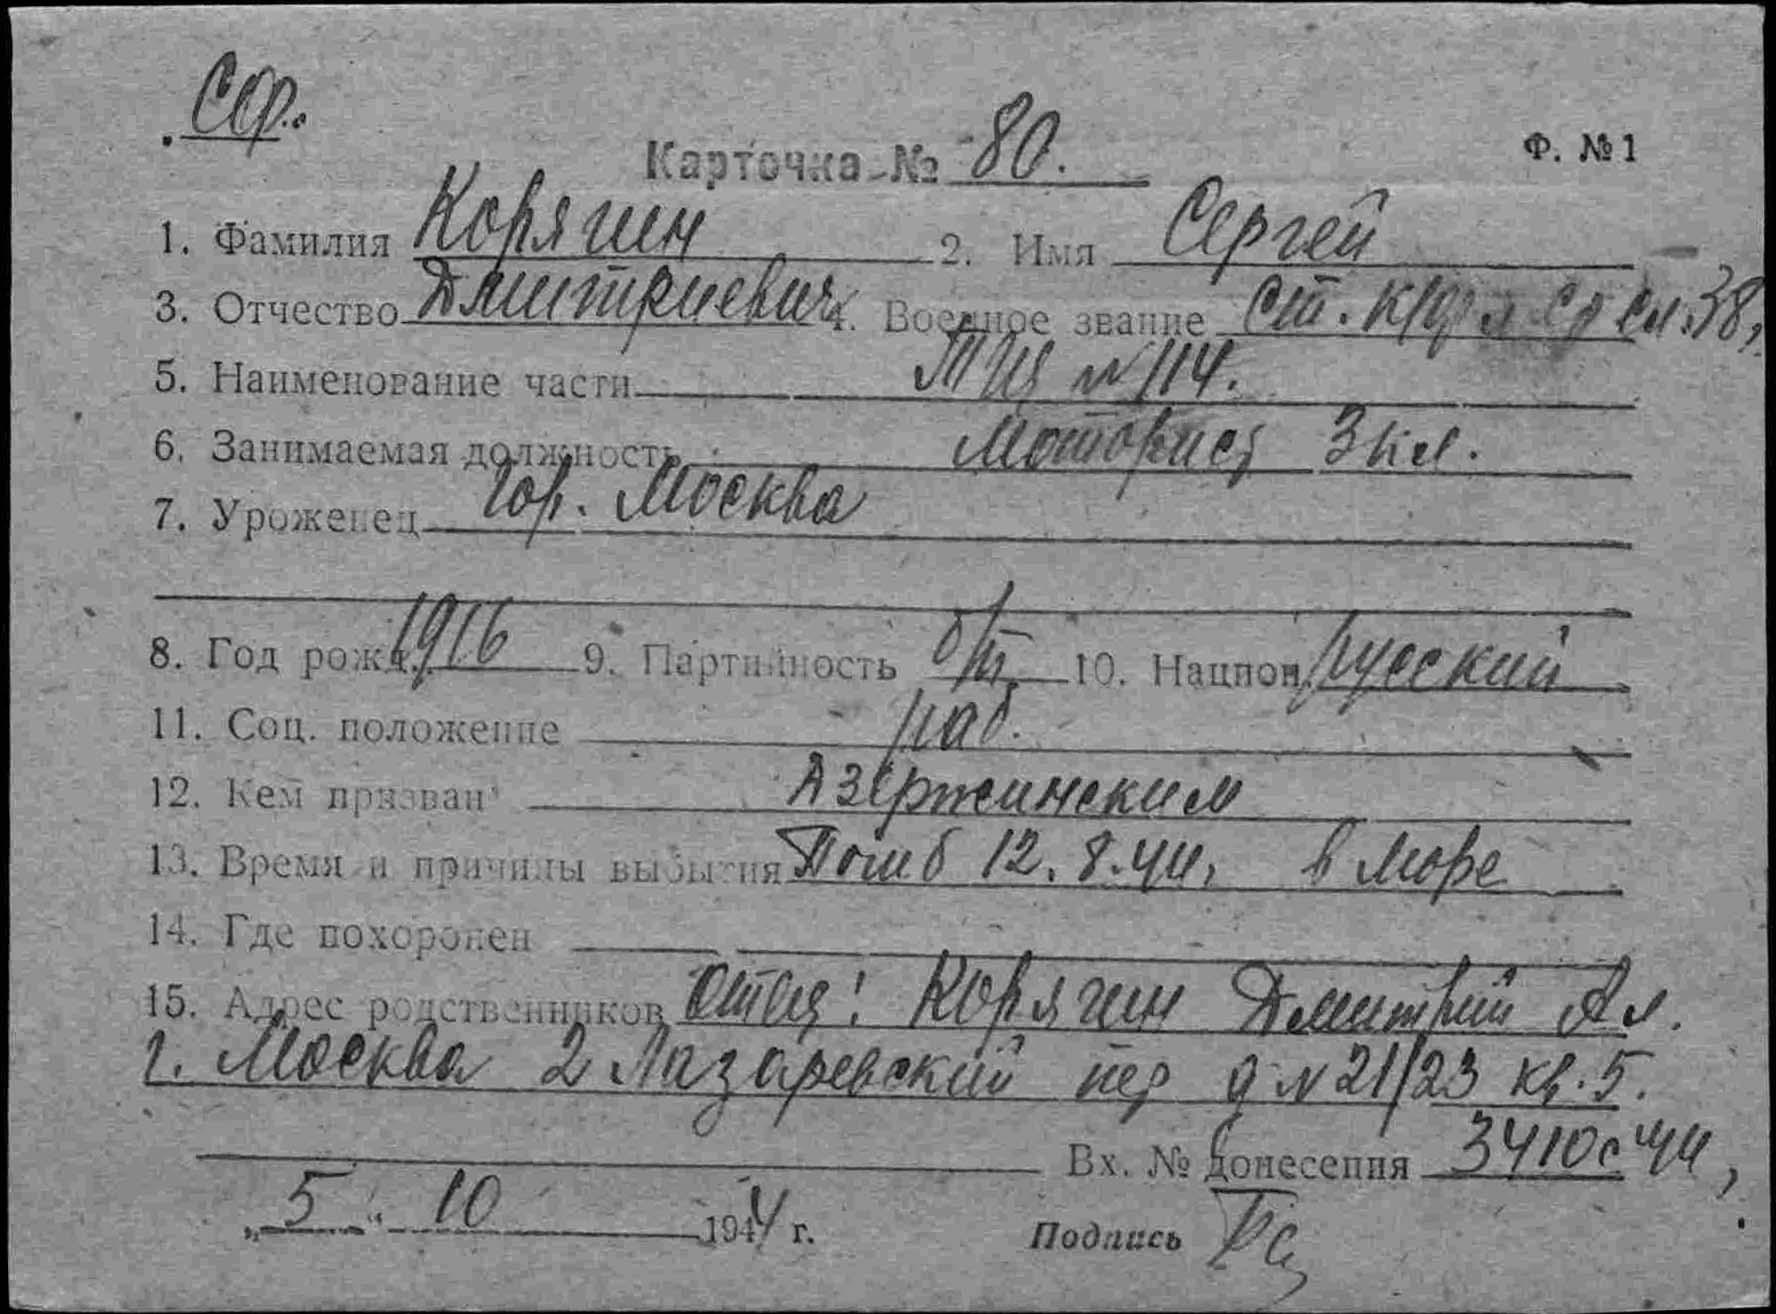 СФ.
Карточка № 80.
Ф. № 1
1. Фамилия Корягин 2. Имя Сергей
3. Отчество Дмитриевич 4. Военное звание ст. к/ф сл. 38,
5. Наименование части ТЩ № 114.
6. Занимаемая должность Моторист 3 кл.
7. Уроженец гор. Москва
8. Год рожд. 1916 9. Партийность б/п 10. Национ. русский
11. Соц. положение раб.
12. Кем призван Дзержинским
13. Время и причины выбытия Погиб 12.8.44, в море
14. Где похоронен
15. Адрес родственников отец: Корягин Дмитрий Ал.
г. Москва 2 Лазаревский пер д № 21/23 кв. 5.
Вх. № донесения 3410с 44,
„5“ 10 1944 г.
Подпись